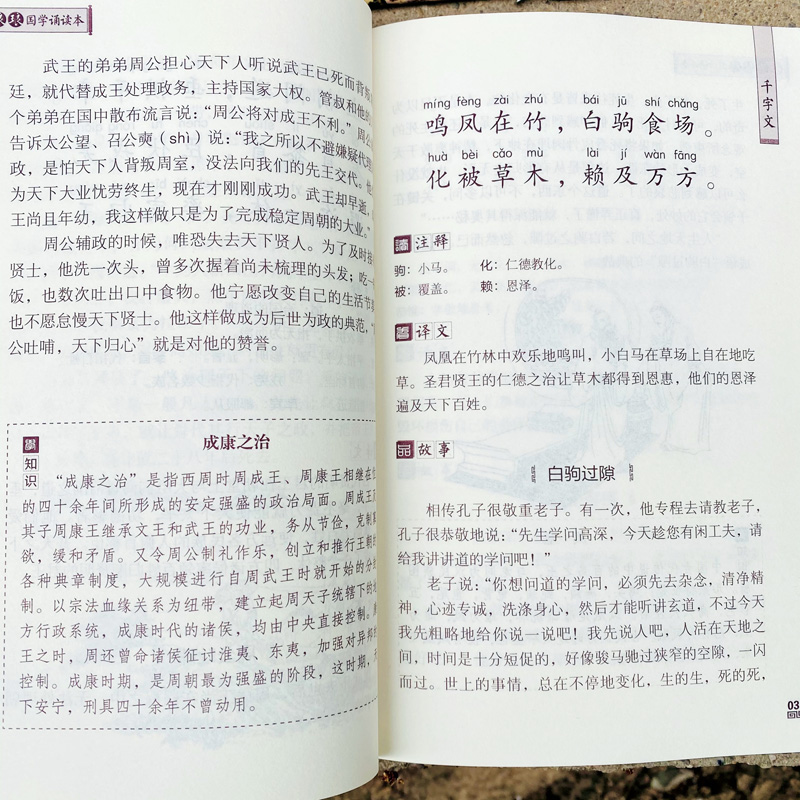 国学诵读本
武王的弟弟周公担心天下人听说武王已死而背叛
廷，就代替成王处理政务，主持国家大权。管叔和他的
个弟弟在国中散布流言说：“周公将对成王不利。”周公
告诉太公望、召公奭（shì）说：“我之所以不避嫌疑代理
政，是怕天下人背叛周室，没法向我们的先王交代。他
为天下大业忧劳终生，现在才刚刚成功。武王却早逝，
王尚且年幼，我这样做只是为了完成稳定周朝的大业。”
周公辅政的时候，唯恐失去天下贤人。为了及时接
贤士，他洗一次头，曾多次握着尚未梳理的头发；吃一
饭，也数次吐出口中食物。他宁愿改变自己的生活节
也不愿怠慢天下贤士。他这样做成为后世为政的典范，“
公吐哺，天下归心”就是对他的赞誉。
知识
成康之治
“成康之治”是指西周时周成王、周康王相继在位
的四十余年间所形成的安定强盛的政治局面。周成王
其子周康王继承文王和武王的功业，务从节俭，克制
欲，缓和矛盾。又令周公制礼作乐，创立和推行王朝的
各种典章制度，大规模进行自周武王时就开始的分
制。以宗法血缘关系为纽带，建立起周天子统辖下的
方行政系统，成康时代的诸侯，均由中央直接控制。
王之时，周还曾命诸侯征讨淮夷、东夷，加强对异
控制。成康时期，是周朝最为强盛的阶段，这时期，
下安宁，刑具四十余年不曾动用。
千字文
míng fèng zài zhú bái jū shí chǎng
鸣凤在竹，白驹食场。
huà bèi cǎo mù lài jí wàn fāng
化被草木，赖及万方。
注释
驹：小马。 化：仁德教化。
被：覆盖。 赖：恩泽。
译文
凤凰在竹林中欢乐地鸣叫，小白马在草场上自在地吃
草。圣君贤王的仁德之治让草木都得到恩惠，他们的恩泽
遍及天下百姓。
故事
白驹过隙
相传孔子很敬重老子。有一次，他专程去请教老子，
孔子很恭敬地说：“先生学问高深，今天趁您有闲工夫，请
给我讲讲道的学问吧！”
老子说：“你想问道的学问，必须先去杂念，清净精
神，心迹专诚，洗涤身心，然后才能听讲玄道，不过今天
我先粗略地给你说一说吧！我先说人吧，人活在天地之
间，时间是十分短促的，好像骏马驰过狭窄的空隙，一闪
而过。世上的事情，总在不停地变化，生的生，死的死，
03